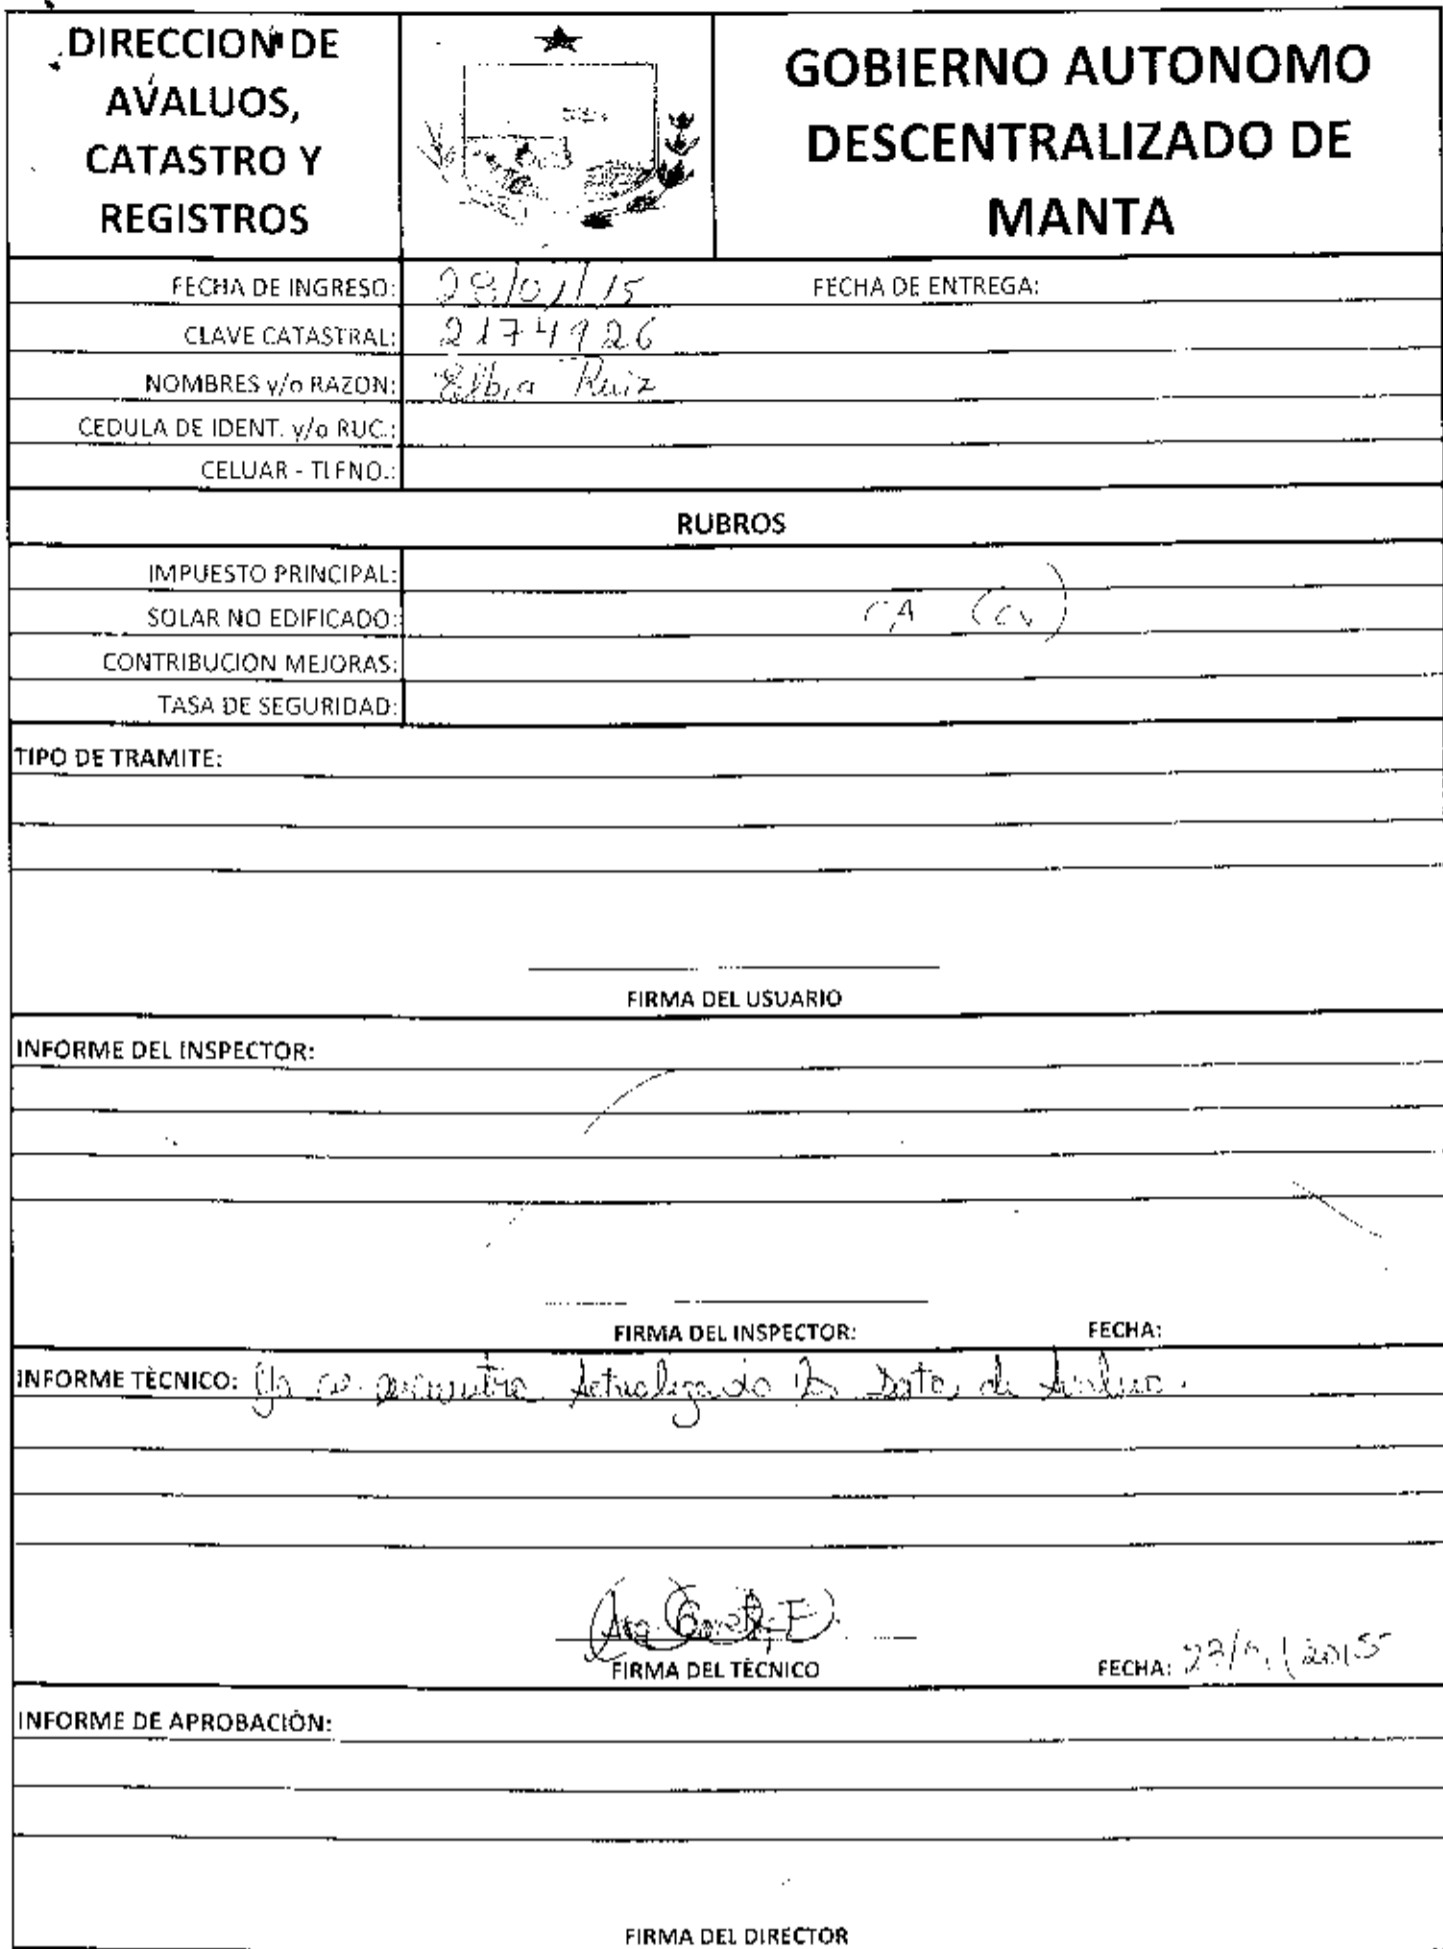 DIRECCION DE
AVALUOS,
CATASTRO Y
REGISTROS
GOBIERNO AUTONOMO
DESCENTRALIZADO DE
MANTA
FECHA DE INGRESO: 28/01/15 FECHA DE ENTREGA:
CLAVE CATASTRAL: 2174926
NOMBRES y/o RAZON: Elbia Ruiz
CEDULA DE IDENT. y/o RUC.:
CELUAR - TLFNO.:
RUBROS
IMPUESTO PRINCIPAL:
SOLAR NO EDIFICADO: CA (CV)
CONTRIBUCION MEJORAS:
TASA DE SEGURIDAD:
TIPO DE TRAMITE:
FIRMA DEL USUARIO
INFORME DEL INSPECTOR:
FIRMA DEL INSPECTOR: FECHA:
INFORME TÈCNICO: Ya se encuentra Actualizado Dato de Avaluo.
FIRMA DEL TÈCNICO FECHA: /2015
INFORME DE APROBACIÒN:
FIRMA DEL DIRECTOR